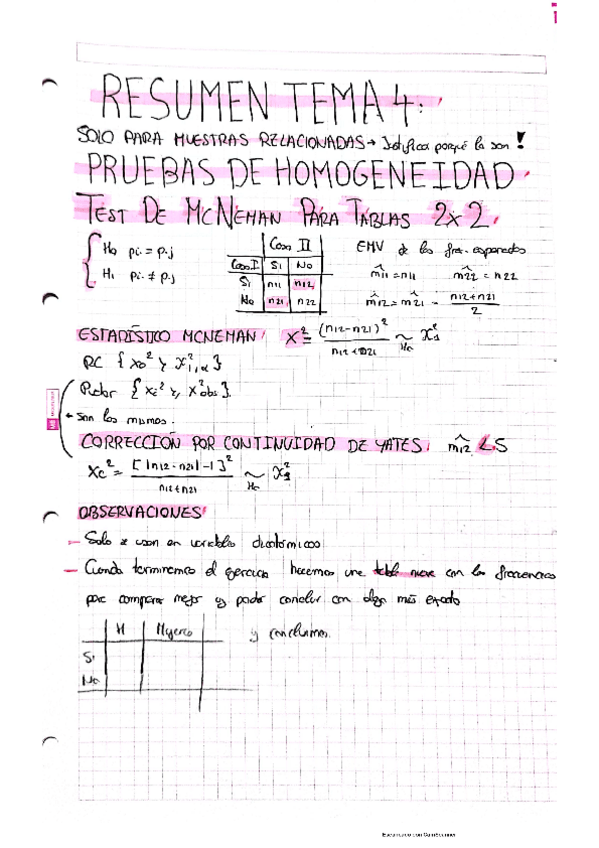 RESUMEN TEMA 4:
SOLO PARA MUESTRAS RELACIONADAS → Justificar porqué lo son !
PRUEBAS DE HOMOGENEIDAD
TEST DE MCNEMAN PARA TABLAS 2x2.
H0 pi. = p.j
H1 pi. ≠ p.j
Cosa II
Cosa I Si No
Si n11 n12
No n21 n22
EMV de las frec. esperadas
m̂11 = n11 m̂22 = n22
m̂12 = m̂21 = (n12+n21)/2
ESTADÍSTICO MCNEMAN: X² = (n12-n21)²/(n12+n21) ~ H0 X²1
RC { x0² ≥ X²1,α }
{ X1² ≥ X²obs }
← Son los mismos.
CORRECCIÓN POR CONTINUIDAD DE YATES: m̂12 < 5
Xc² = [|n12-n21|-1]²/(n12+n21) ~ H0 X²1
OBSERVACIONES:
- Solo se usan en variables dicotómicas
- Cuando terminemos el ejercicio hacemos una tabla nueva con las frecuencias
para comparar mejor y poder concluir con algo más exacto
H Mujeres
Si
No
y concluimos.
Escaneado con CamScanner